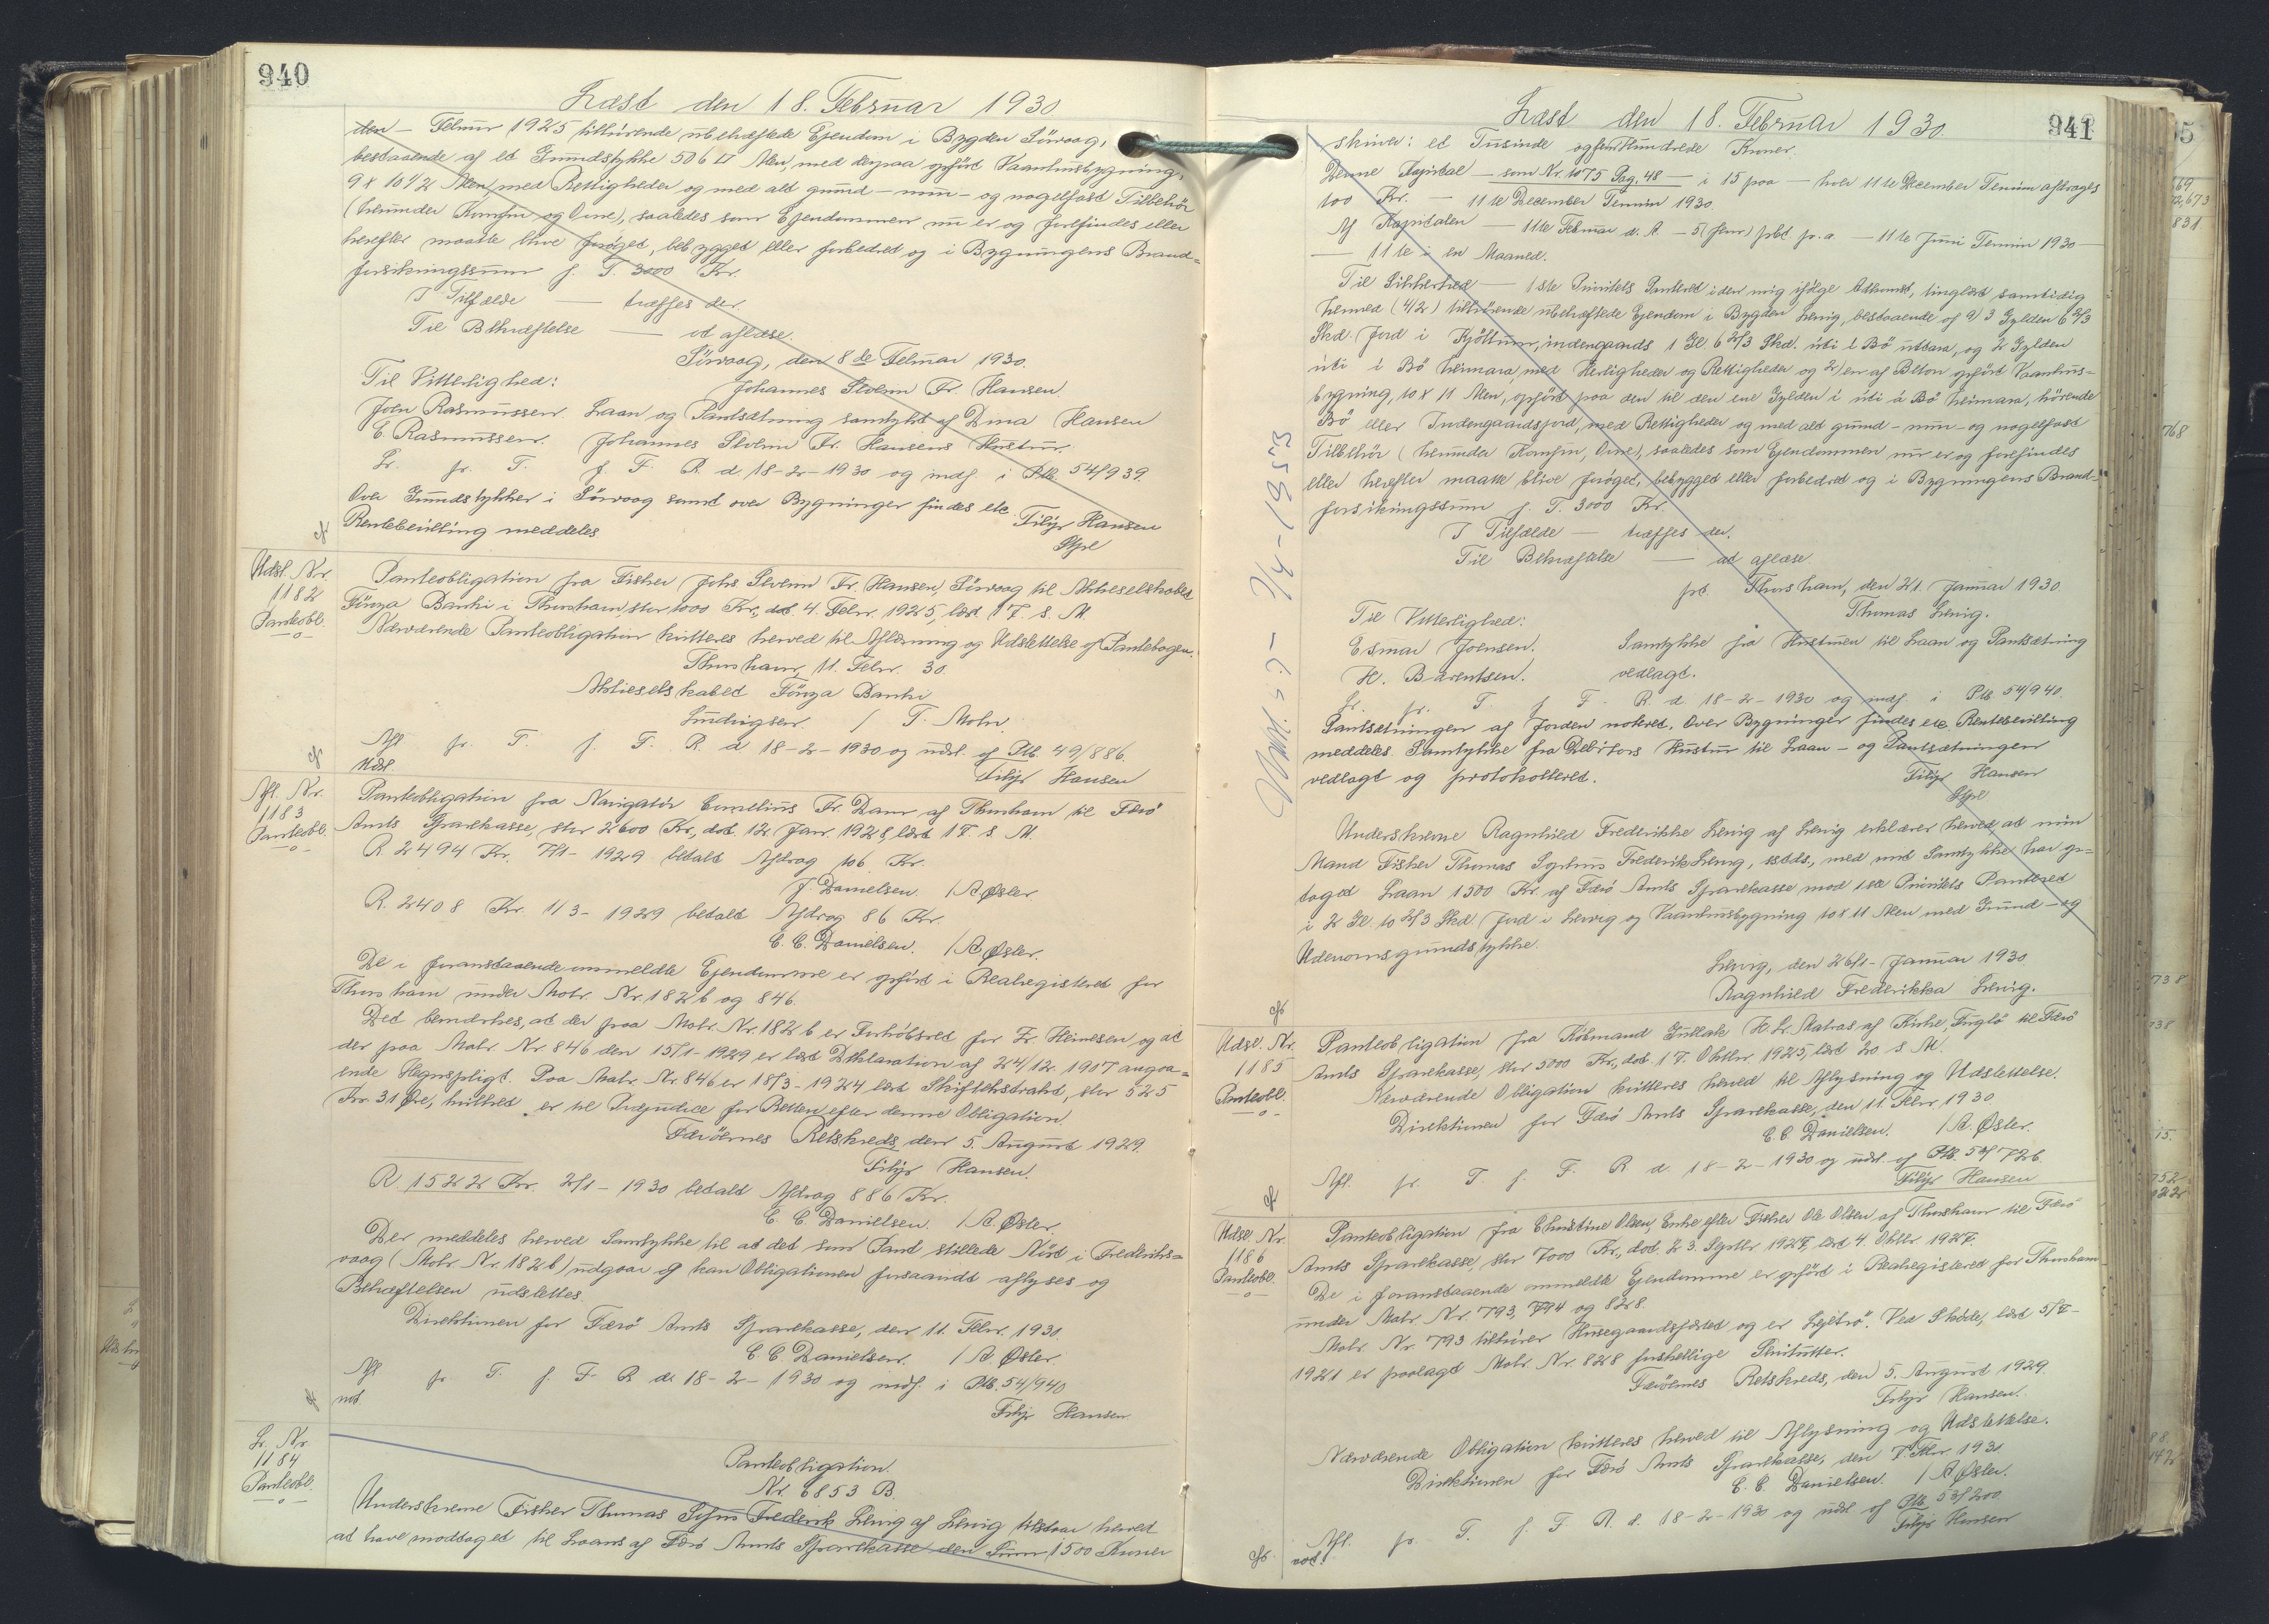 940
Læst den 18. Februar 1930.
den - Februar 1925 tilhørende ubehæftede Ejendom i Bygden Sörvaag,
bestaaende af et Grundstykke 506 □ Alen, med derpaa opført Vaanhusbygning,
9 x 10 1/2 Alen, med Rettigheder og med alt grund- mur- og nagelfast Tilbehör
(herunder Komfur og Ovne), saaledes som Ejendommen nu er og forefindes eller
herefter maatte blive foröget, bebygget eller forbedret og i Bygningens Brand=
forsikringssum p. T. 3000 Kr.
I Tilfælde — træffes der.
Til Bekræftelse — at aflæse.
Sörvaag, den 8de Februar 1930.
Til Vitterlighed: Johannes Sverri Fr. Hansen
John Rasmussen. Laan og Pantsætning samtykt af Dina Hansen
E. Rasmussen. Johannes Hansens Hustru.
Lr. fr. T. f. F. R. d 18-2-1930 og indf. i Ptb. 54/939.
Over Grundstykker i Sörvaag samt over Bygninger findes etc.
Rentebevilling meddeles Filip Hansen
Udsl. Nr.
1182
Panteobl.
Panteobligation fra Fisker Johs Fr. Hansen, Sörvaag til Aktieselskabet
Föroya Banki i Thorshavn, stor 1000 Kr., dat. 4. Febr. 1925, læst 17. s. M.
Nærværende Panteobligation kvitteres herved til Aflæsning og Udslettelse af Pantebogen.
Thorshavn, 11. Febr. 30.
Aktieselskabet Föroya Banki
Ludvigsen / T. Mohr.
Afl fr. T. f. F. R. d 18-2-1930 og udsl. af Ptb. 49/886.
Udsl. Filip Hansen
Afl. Nr.
1183
Panteobl.
Panteobligation fra Navigatör Cornelius Fr. Dam af Thorshavn til Færö
Amts Sparekasse, stor 2600 Kr., dat. 12 Janr. 1928, læst 17 s. M.
R. 2494 Kr. 7/1-1929 betalt Afdrag 106 Kr.
J. Danielsen / A. Øster.
R. 2408 Kr. 1/3-1929 betalt Afdrag 86 Kr.
C. C. Danielsen. / A. Øster.
De i foranstaaende ommeldte Ejendomme er opfört i Realregistret for
Thorshavn under Matr. Nr. 182 b og 846.
Det bemærkes, at der paa Matr. Nr. 182 b er Forköbsret for Fr. Heinesen, og at
der paa Matr. Nr 846 den 15/1-1929 er læst Deklaration af 24/12. 1907 angaa=
ende Hegnspligt. Paa Matr. Nr. 846 er 18/3-1924 læst Skifteekstrakt, stor 525
Kr. 31 Øre, hvilket er til Præjudice for Retten efter denne Obligation.
Færöernes Retskreds, den 5. August 1929.
Filip Hansen.
R 1522 Kr. 2/1-1930 betalt Afdrag 886 Kr.
C. C. Danielsen. / A. Øster.
Der meddeles herved Samtykke til at det som Pant stillede Nöst i Frederiks=
vaag (Matr. Nr. 182 b) udgaar og kan Obligationen forsaavidt aflyses og
Behæftelsen udslettes.
Direktionen for Færö Amts Sparekasse, den 11. Febr. 1930.
C. C. Danielsen. / A. Øster.
Afl fr. T. f. F. R. d. 18-2-1930 og indf. i Ptb. 54/940
not Filip Hansen.
Lr. Nr.
1184
Panteobl.
Panteobligation.
Nr. 6853 B.
Underskrevne Fisker Thomas Frederik Leivig af Leivig tilstaar herved
at have modtaget til Laans af Færö Amts Sparekasse den Sum 1500 Kroner
941
Læst den 18. Februar 1930.
skriver: et Tusinde og fem Hundrede Kroner.
Denne Kapital — som Nr. 1075 Pag. 48 — i 15 paa — hver 11te December Termin afdrages
100 Kr. — 11te December Termin 1930
Af Kapitalen — 11te Februar d. A. — 5 (fem) pCt p. a. — 11te Juni Termin 1930 —
— 11te i en Maaned.
Til Sikkerhed — 1ste Prioritets Panteret i den mig ifölge Adkomst, tinglæst samtidig
hermed (4/2) tilhörende ubehæftede Ejendom i Bygden Leivig, bestaaende af a) 3 Gylden 6 2/3
Skd. Jord i indengaards 1 Gl. 6 2/3 Skd. úti í Bö uttara, og 2 Gylden
úti í Bö heimara, med Herligheder og Rettigheder og 2) en af Beton opfört Vaanhus-
bygning, 10 x 11 Alen, opfört paa den til den ene Gylden í úti á Bö heimara, hörende
Bö eller Indengaardsjord, med Rettigheder og med alt grund- mur- og nagelfast
Tilbehör (herunder Komfur, Ovne), saaledes som Ejendommen nu er og forefindes
eller herefter maatte blive foröget, bebygget eller forbedret og i Bygningens Brand-
forsikringssum p. T. 3000 Kr.
I Tilfælde — træffes der.
Til Bekræftelse — at aflæse.
pt. Thorshavn, den 21. Januar 1930.
Til Vitterlighed: Thomas Leivig.
Esmar Joensen. Samtykke fra Hustruen til Laan og Pantsætning
H. Barentsen. vedlagt.
Lr. fr. T. f. F. R. d 18-2-1930 og indf. i Ptb. 54/940.
Pantsætningen af Jorden noteret. Over Bygninger findes etc. Rentebevilling
meddeles. Samtykke fra Debitors Hustru til Laan- og Pantsætningen
vedlagt og protokolleret. Filip Hansen
Underskrevne Ragnhild Frederikke Leivig af Leivig erklærer herved, at min
Mand Fisker Thomas Frederik Leivig, ssteds., med mit Samtykke har op-
taget Laan 1500 Kr. af Færö Amts Sparekasse mod 1ste Prioritets Panteret
i 2 Gl. 10 2/3 Skd. Jord i Leivig og Vaanhusbygning 10 x 11 Alen med Grund- og
Udenomsgrundstykke.
Leivig, den 26/1- Januar 1930
Ragnhild Frederikka Leivig.
Udsl. 57 - 7/4-1953
Udsl. Nr.
1185
Panteobl.
Panteobligation fra Köbmand Gullak H. Lr. Matras af Kirke, Fuglö til Færö
Amts Sparekasse, stor 3000 Kr., dat. 17. Oktbr. 1925, læst 20 s. M.
Nærværende Obligation kvitteres herved til Aflysning og Udslettelse.
Direktionen for Færö Amts Sparekasse, den 11. Febr. 1930
C. C. Danielsen. / A. Øster.
Afl. fr. T. f. F. R. d. 18-2-1930 og udsl. af Ptb. 50/726.
Filip Hansen
Udsl. Nr.
1186
Panteobl.
Panteobligation fra Christine Olsen, Enke efter Fisker Ole Olsen af Thorshavn til Færö
Amts Sparekasse, stor 7000 Kr., dat. 23. Septbr 1927, læst 4. Oktbr. 1927.
De i foranstaaende ommeldte Ejendomme er opfört i Realregistret for Thorshavn
under Matr. Nr. 793, 794 og 828.
Matr. Nr. 793 tilhörer Husegaardsfæsted og er Lejetrö. Ved Sköde, læst 5/7-
1921 er paalagt Matr. Nr. 828 forskellige Servitutter.
Færöernes Retskreds, den 5. August 1929.
Filip Hansen.
Nærværende Obligation kvitteres herved til Aflysning og Udslettelse.
Direktionen for Færö Amts Sparekasse, den 7. Febr. 1930
C. C. Danielsen. / A. Øster.
Afl. fr. T. f. F. R. d. 18-2-1930 og udsl. af Ptb. 53/200.
not. Filip Hansen